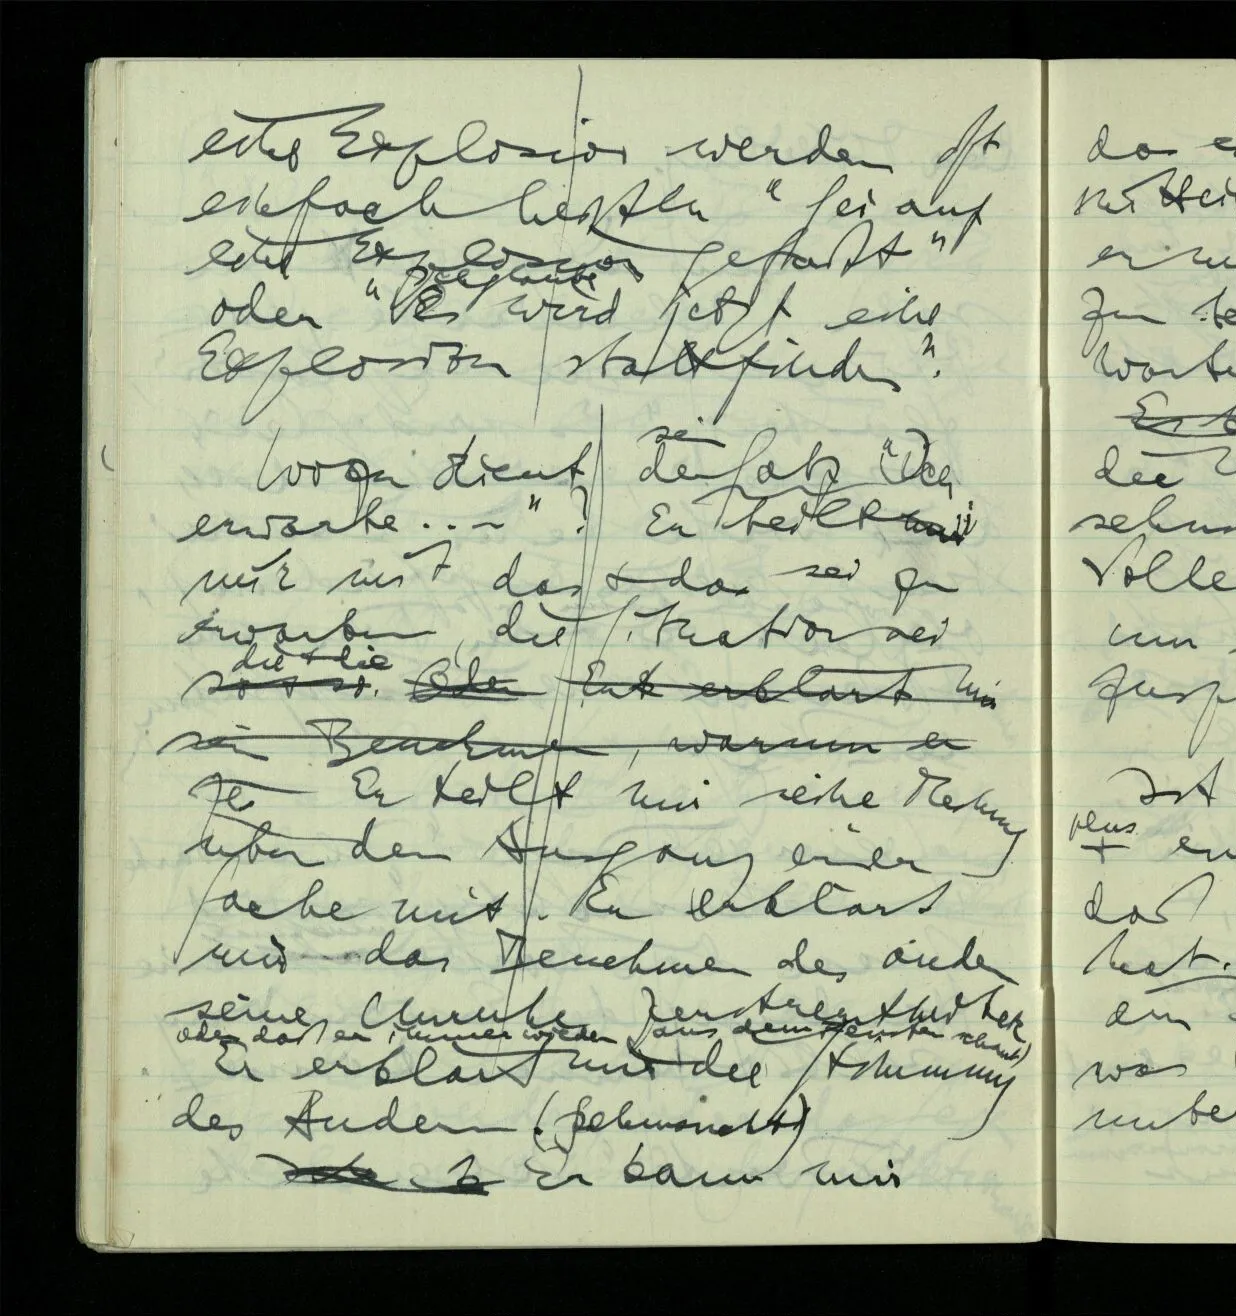 eine Explosion werden oft
einfach heißen "Sei auf
eine Explosion gefaßt"
ich glaube
oder "Es wird jetzt eine
Explosion stattfinden".
sein
Wozu dient der Satz "Ich
erwarte..."? Er teilt
mir mit das + das sei zu
erwarten, die Situation sei
die + die
so + so. Oder Er erklärt mir
sein Benehmen, warum er
Er teilt mir seine Meinung
über den Ausgang einer
Sache mit. Er erklärt
mir das Benehmen des andern
seine Unruhe Zerstreutheit
oder daß er immer wieder aus dem Fenster schaut)
Er erklärt mir die Stimmung
des Andern (Sehnsucht)
Er kann mir
das
mit
er
zu
warte
die
Volle
um
Ist
plus
+
daß
hat.
den
was